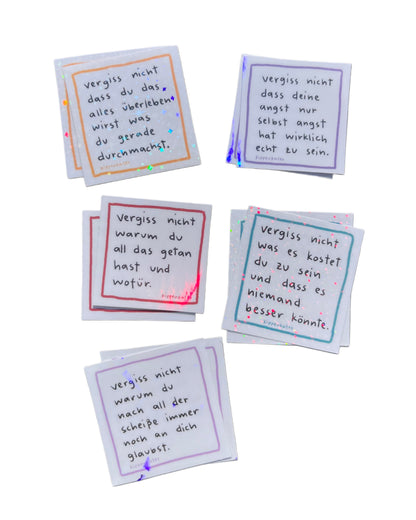 vergiss nicht
dass du das
alles überleben
wirst was
du gerade
durchmachst.
vergiss nicht
dass deine
angst nur
selbst angst
hat wirklich
echt zu sein.
vergiss nicht
warum du
all das getan
hast und
wofür.
vergiss nicht
was es kostet
du zu sein
und dass es
niemand
besser könnte.
vergiss nicht
warum du
nach all der
scheiße immer
noch an dich
glaubst.